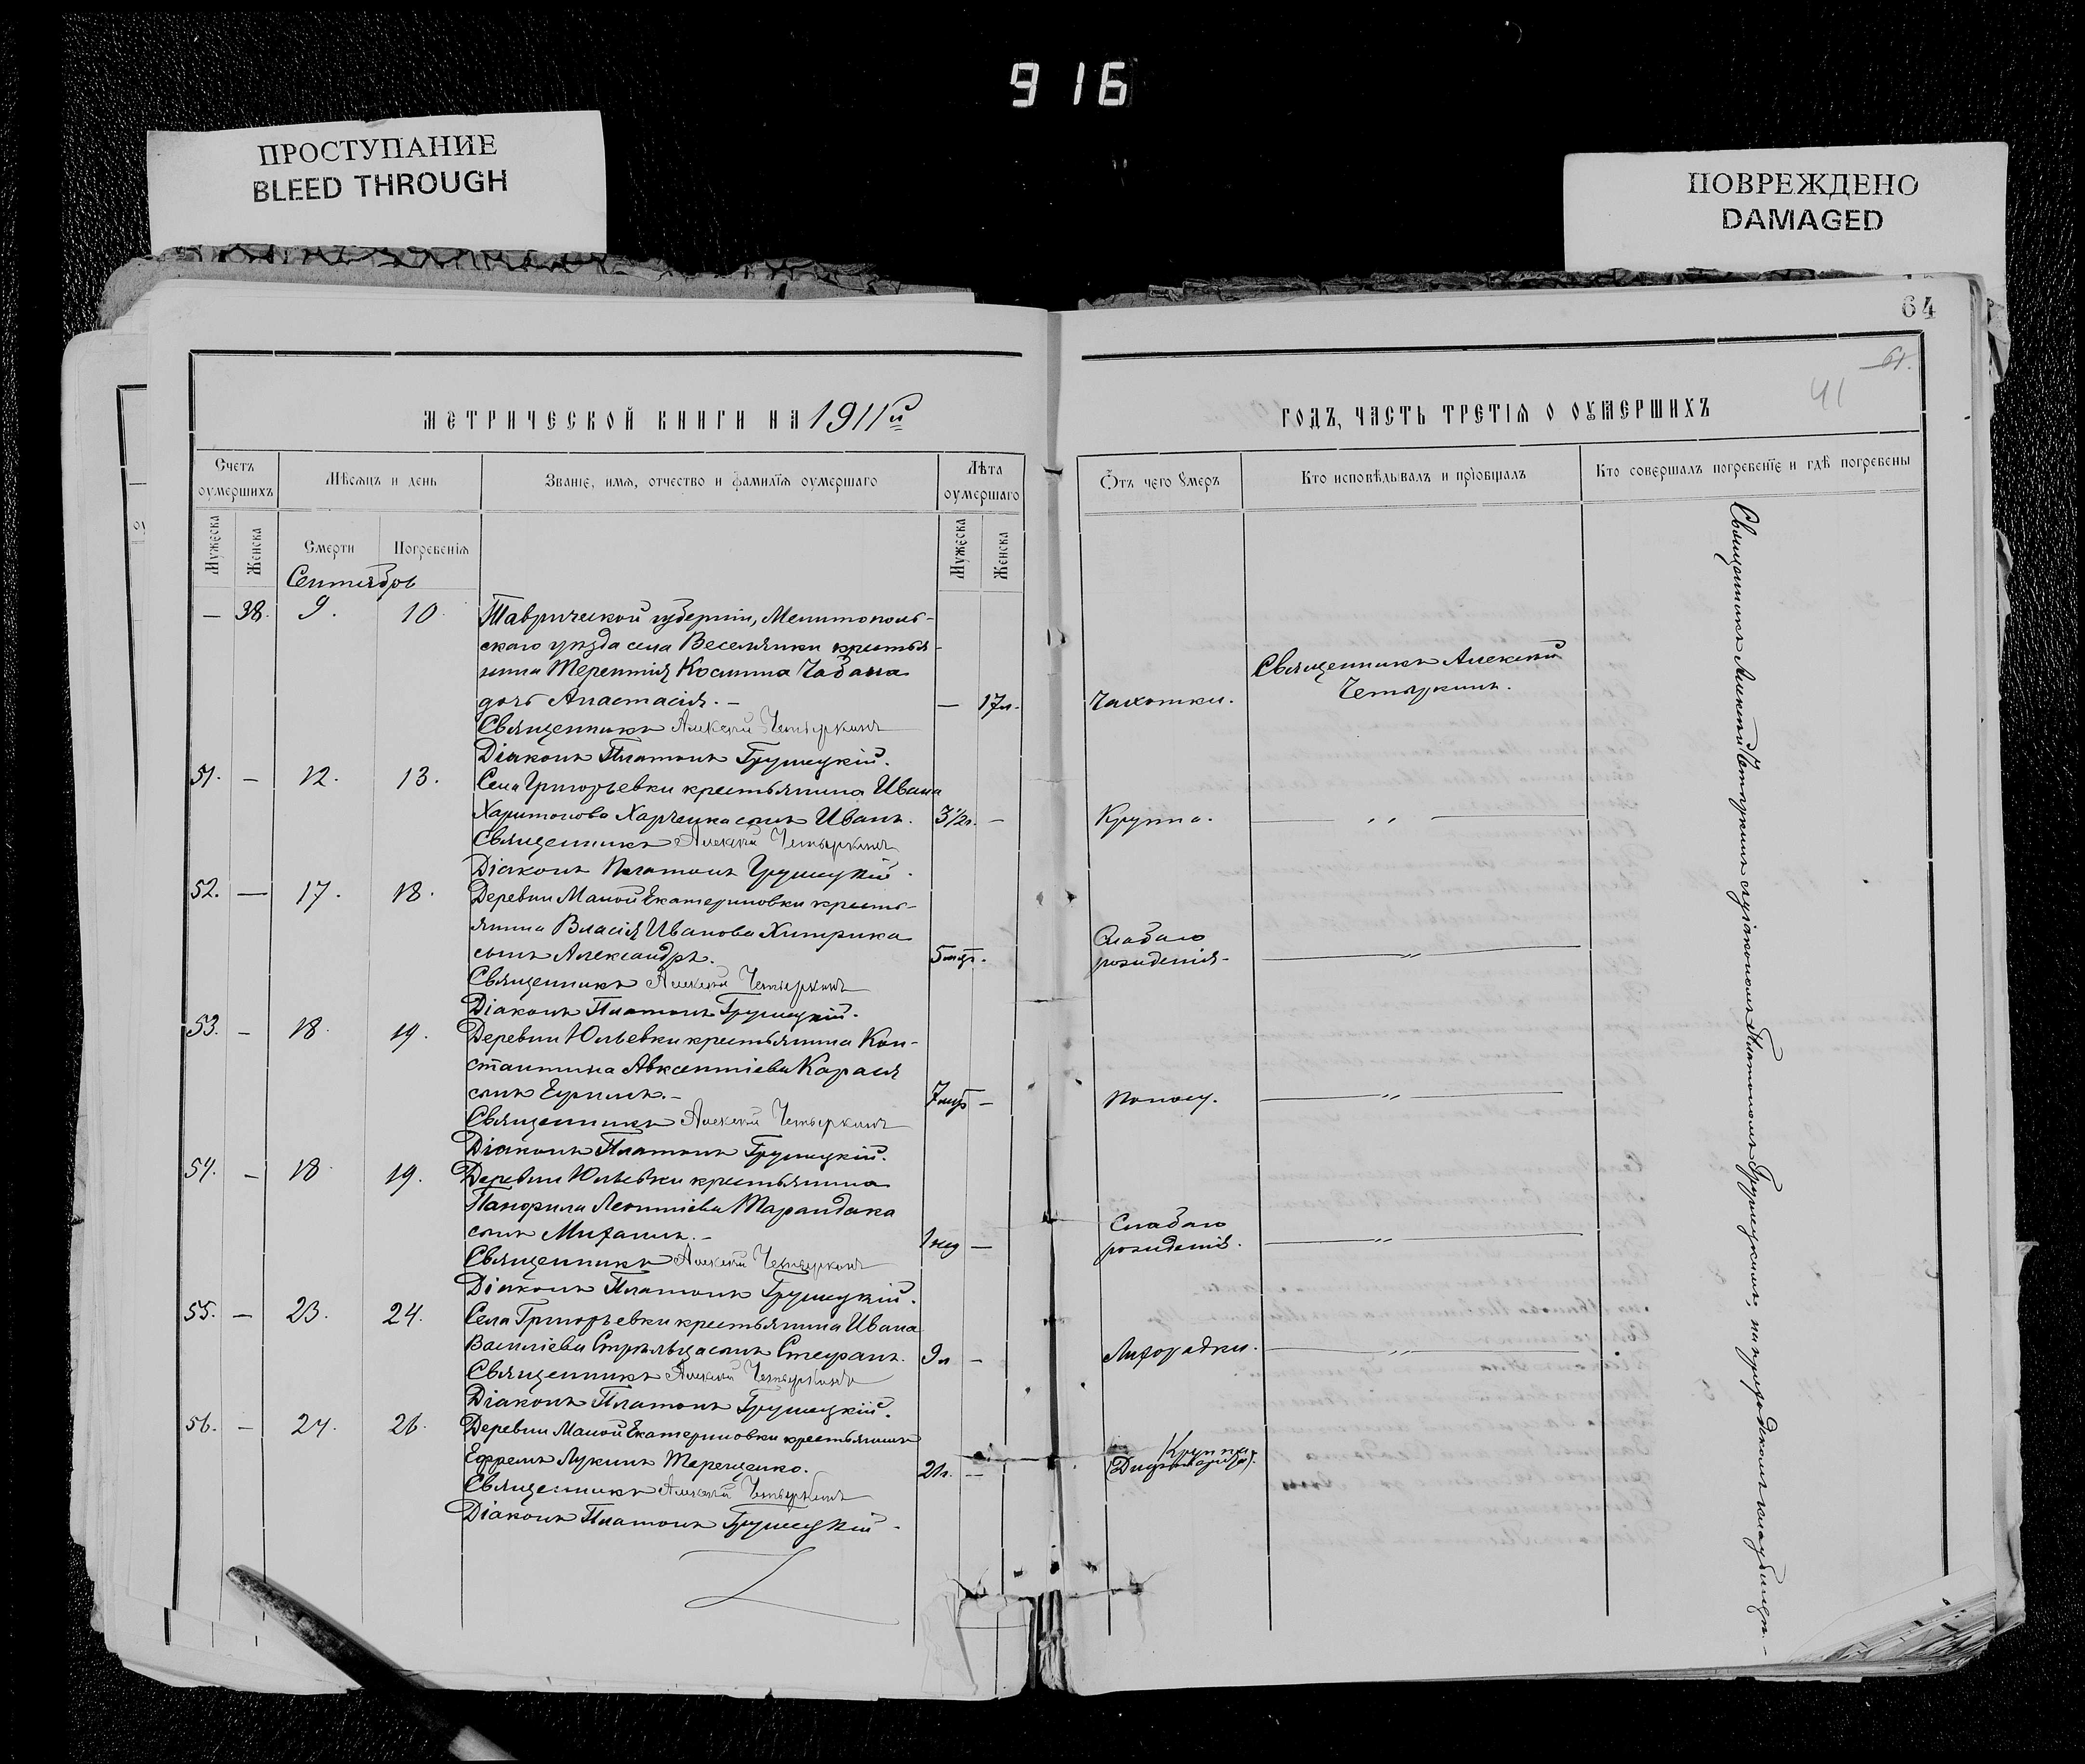 916
ПРОСТУПАНИЕ
BLEED THROUGH
ПОВРЕЖДЕНО
DAMAGED
64
61.
41
МЕТРИЧЕСКОЙ КНИГИ НА 1911й
Счетъ оумершихъ
Мѣсяцъ и день
Званіе, имя, отчество и фамилія оумершаго
Лѣта оумершаго
Мужеска
Женска
Смерти
Погребенія
Мужеска
Женска
Сентябрь
— 38. 9. 10. Таврической губерніи, Мелитополь-
скаго уѣзда села Веселянки крестья-
нина Терентія Космина Чабана
дочь Анастасія. — — 17л.
Священникъ Алексій Четыркинъ
Діаконъ Платонъ Грушецкій.
51. — 12. 13. Села Григорьевки крестьянина Ивана
Харитонова Харченка сынъ Иванъ. 3½г. —
Священникъ Алексій Четыркинъ
Діаконъ Платонъ Грушецкій.
52. — 17. 18. Деревни Малой Екатериновки кресть-
янина Власія Иванова Хитрика
сынъ Александръ. 5мѣс.
Священникъ Алексій Четыркинъ
Діаконъ Платонъ Грушецкій.
53. — 18. 19. Деревни Юльевки крестьянина Кон-
стантина Авксентіева Карася
сынъ Ефимъ. —
Священникъ Алексій Четыркинъ
Діаконъ Платонъ Грушецкій.
54. — 18. 19. Деревни Юльевки крестьянина
Панфила Леонтіева Тарандака
сынъ Михаилъ. — 1 нед —
Священникъ Алексій Четыркинъ
Діаконъ Платонъ Грушецкій.
55. — 23. 24. Села Григорьевки крестьянина Ивана
Василіева Стрѣльца сынъ Стефанъ. 9л —
Священникъ Алексій Четыркинъ
Діаконъ Платонъ Грушецкій.
56. — 24. 26. Деревни Малой Екатериновки крестьянинъ
Ефремъ Лукинъ Терещенко. 21г. —
Священникъ Алексій Четыркинъ
Діаконъ Платонъ Грушецкій.
ГОДЪ, ЧАСТЬ ТРЕТІЯ О ОУМЕРШИХЪ
Отъ чего умеръ
Кто исповѣдывалъ и пріобщалъ
Кто совершалъ погребеніе и гдѣ погребены
Священникъ Алексій
Четыркинъ.
Чахотки.
Круппа. — „ —
Слабаго
рожденія. — „ —
Поносу. — „ —
Слабаго
рожденія. — „ —
Лихорадки. — „ —
Круппа
Священникъ Алексій Четыркинъ съ діакономъ Платономъ Грушецкимъ, на приходскомъ кладбищѣ. —